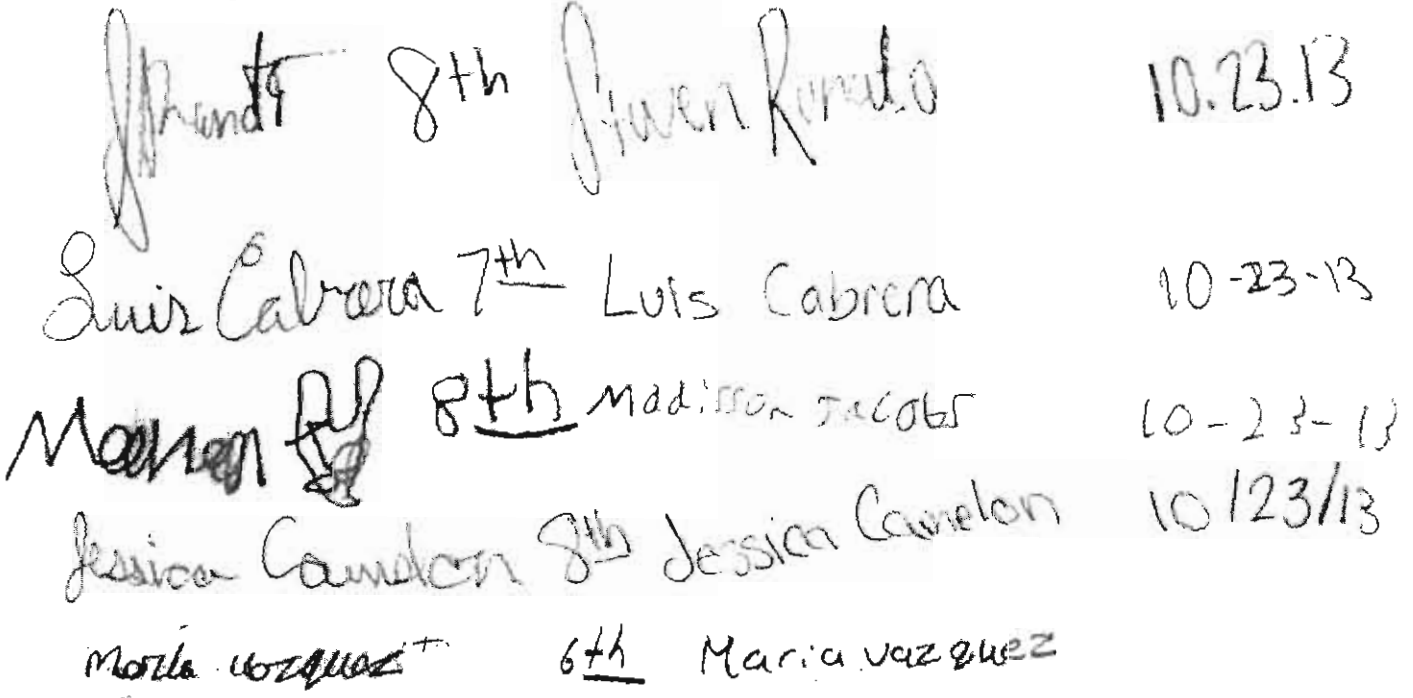 8th 10.23.13
Luis Cabrera 7th Luis Cabrera 10-23-13
8th Madisson Jacobs 10-23-13
Jessica Camelon 8th Jessica Camelon 10/23/13
Maria vazquez 6th Maria vazquez